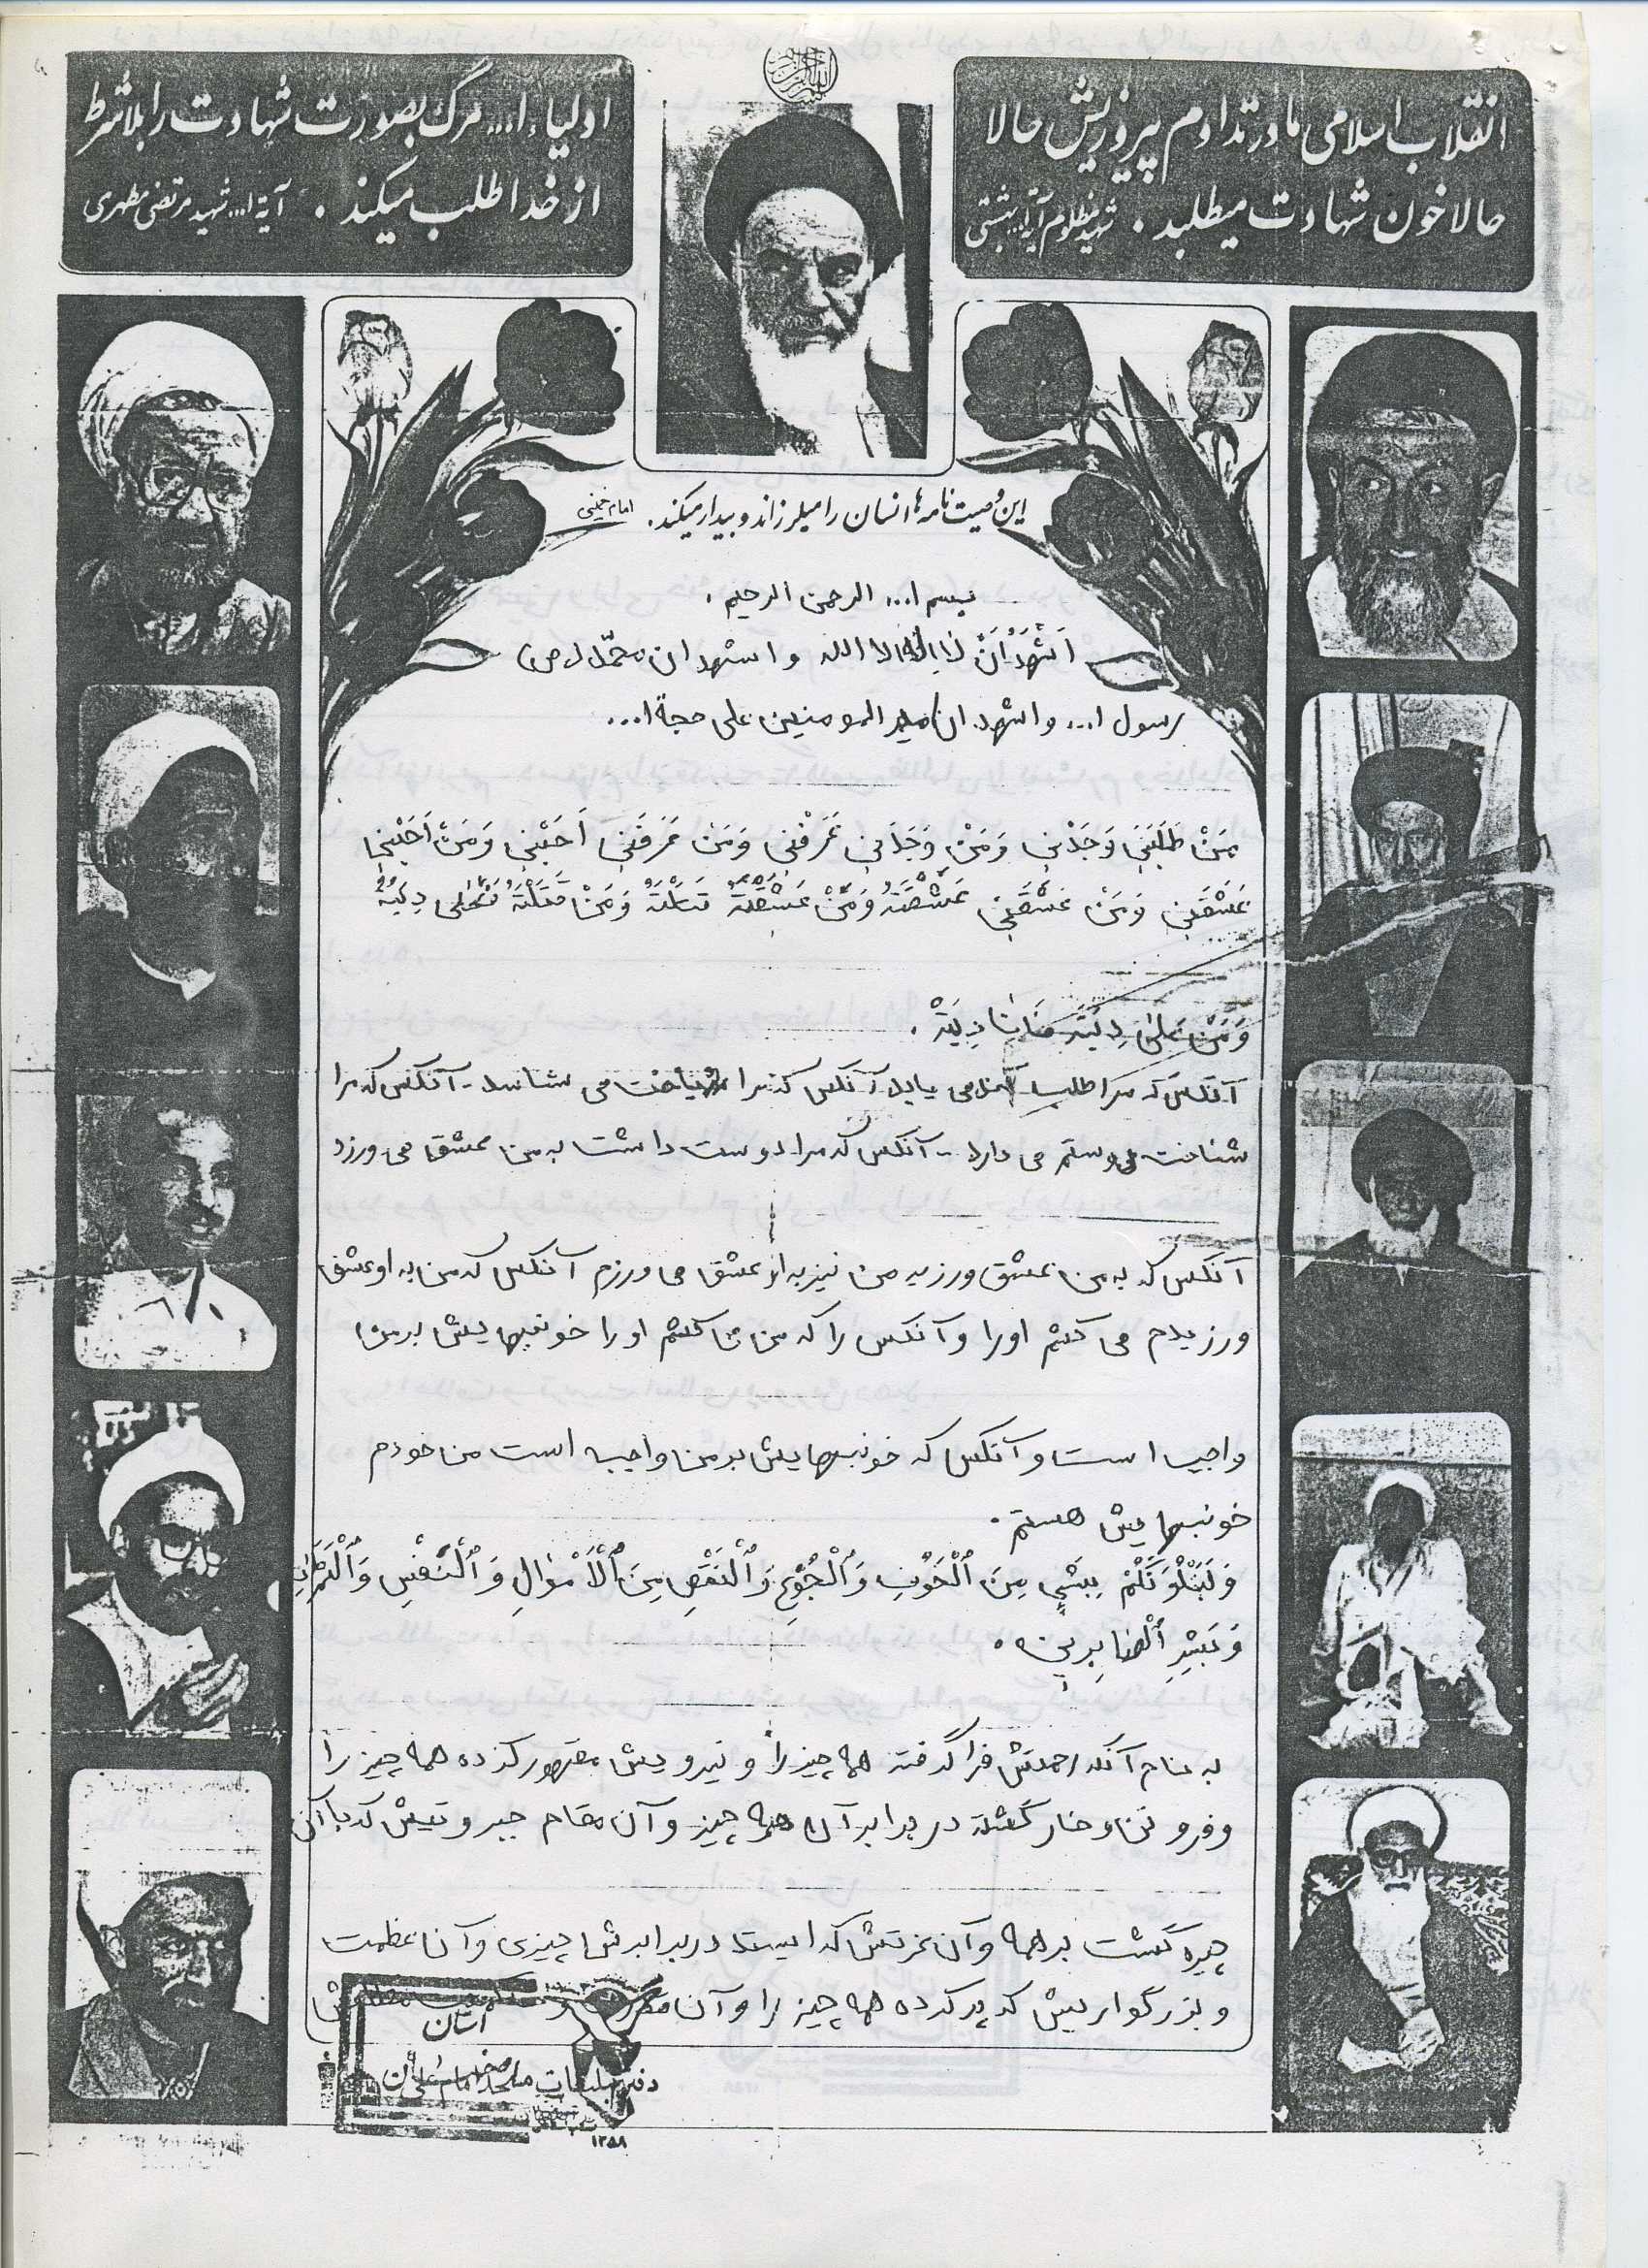 انقلاب اسلامی ما در تداوم پیروزیش حالا
حالا خون شهادت میطلبد . شهید مظلوم آیة ا... بهشتی
اولیاء ا... مرگ بصورت شهادت را بلاشرط
از خدا طلب میکند . آیة ا... شهید مرتضی مطهری
این وصیت نامه ها انسان را میلرزاند و بیدار میکند . امام خمینی
بسم ا... الرحمن الرحیم .
اَشْهَدُ اَنْ لا اِلٰهَ الا الله و اشهد ان محمّد (ص)
رسول ا... و اشهد ان امیر المومنین علی حجة ا...
مَنْ طَلَبَنی وَجَدَنی وَمَنْ وَجَدَنی عَرَفَنی وَمَنْ عَرَفَنی اَحَبَّنی وَمَنْ اَحَبَّنی
عَشَقَنی وَمَنْ عَشَقَنی عَشَقْتَهُ وَمَنْ عَشَقْتَهُ قَتَلْتَهُ وَمَنْ قَتَلْتَهُ فَعَلی دِیَتُهُ
وَمَنْ عَلیٰ دِیَتَه فَاَنَا دِیَتَهْ .
آنکس که مرا طلب کند می یابد آنکس که مرا یافت می شناسد - آنکس که مرا
شناخت دوستم می دارد - آنکس که مرا دوست داشت به من عشق می ورزد
آنکس که به من عشق ورزید من نیز به او عشق می ورزم آنکس که من به او عشق
ورزیدم می کشم او را و آنکس را که من بکشم او را خونبهایش بر من
واجب است و آنکس که خونبهایش بر من واجب است من خودم
خونبهایش هستم .
وَلَنَبْلُوَنَّکُمْ بِشَیٍ مِنَ ٱلْخَوْفِ وَٱلْجُوْعِ وَٱلْنَقْصِ مِنَ ٱلْاَمْوٰالِ وَ ٱلْنَفْسِ وَٱلْثَمَرٰاتِ
وَ بَشِّرِ ٱلْصٰابِرینَ .
به نام آنکه رحمتش فرا گرفته همه چیز را و نیرویش مقهور کرده همه چیز را
و فروتن و خار گشته در برابر آن همه چیز و آن مقام جبروتیش که با آن
چیره گشت بر همه و آن عزتش که نایستد در برابرش چیزی و آن عظمت
و بزرگواریش که پر کرده همه چیز را و آن
استان
دفتر تبلیغات
۱۳۵۸